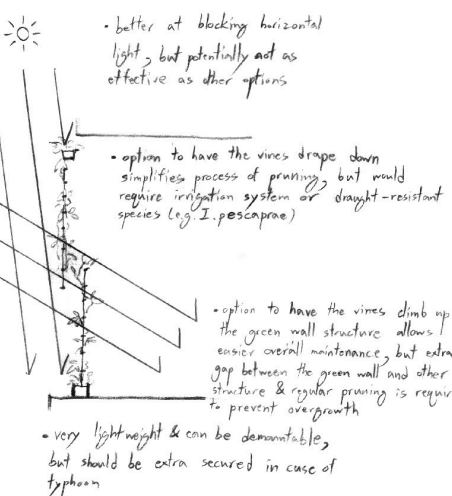 • better at blocking horizontal
light, but potentially not as
effective as other options
• option to have the vines drape down
simplifies process of pruning, but would
require irrigation system or draught-resistant
species (e.g. I. pescaprae)
• option to have the vines climb up
the green wall structure allows
easier overall maintonance, but extra
gap between the green wall and other
structure & regular pruning is requir
to prevent overgrowth
• very lightweight & can be demountable,
but should be extra secured in case of
typhoon